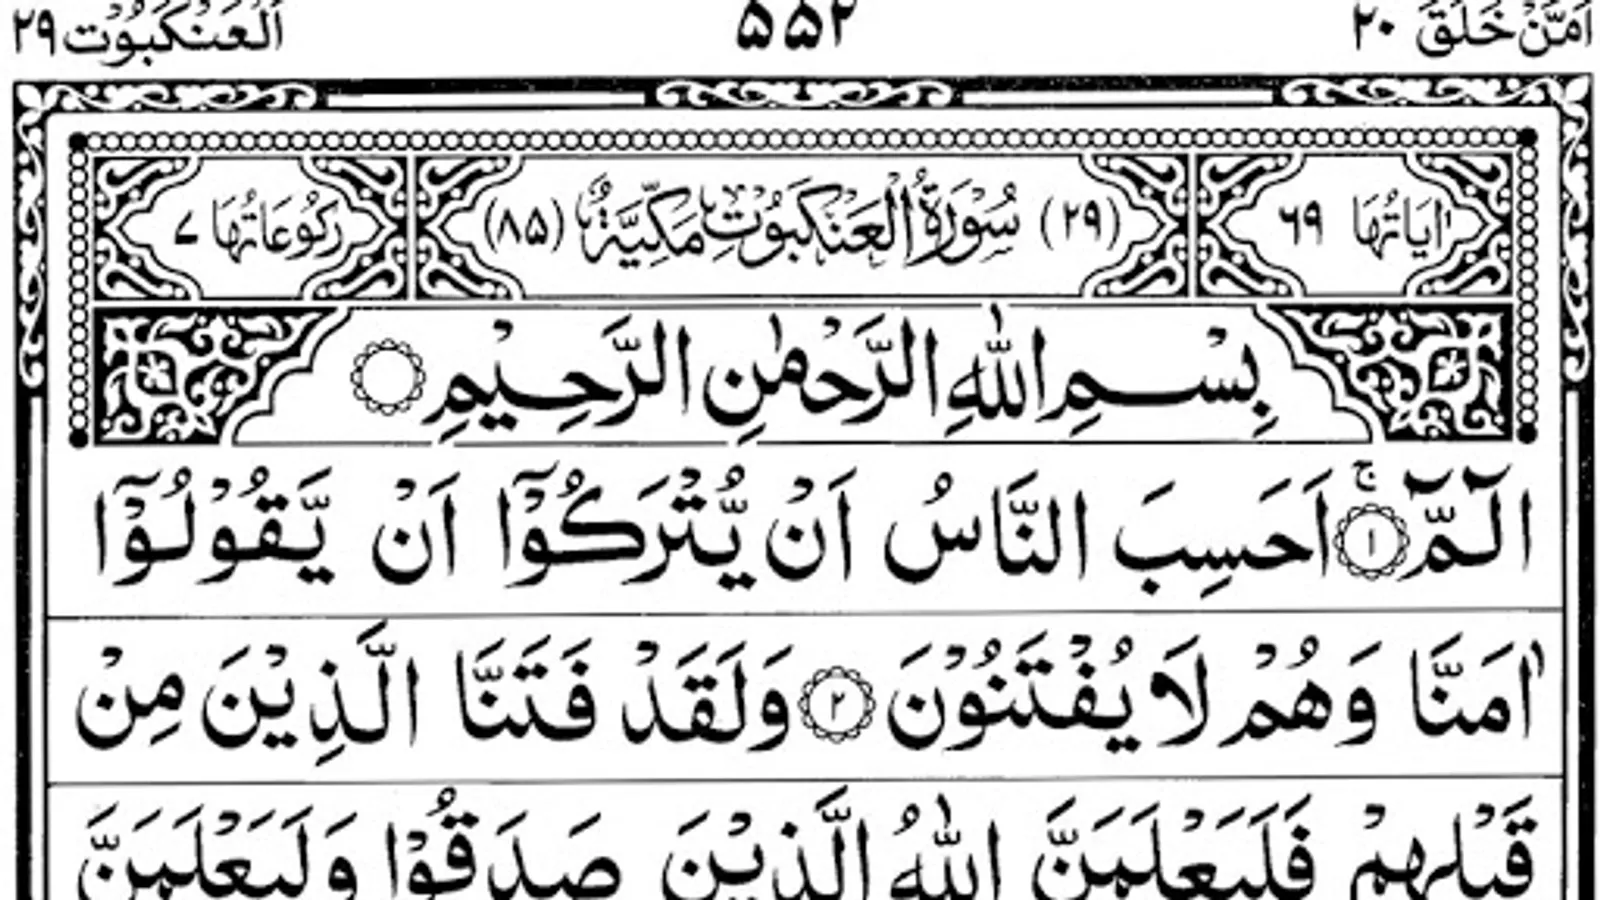 اَمَّنۡ خَلَقَ ۲۰ ۵۵۲ اَلۡعَنۡكَبُوۡت ۲۹
اٰيَاتُهَا ۶۹ (۲۹) سُوۡرَةُ الۡعَنۡكَبُوۡتِ مَكِّيَّةٌ (۸۵) رُكُوۡعَاتُهَا ۷
بِسۡمِ اللّٰهِ الرَّحۡمٰنِ الرَّحِيۡمِ
الٓمّٓ ۚ‏ ﴿۱﴾ اَحَسِبَ النَّاسُ اَنۡ يُّتۡرَكُوۡۤا اَنۡ يَّقُوۡلُوۡۤا
اٰمَنَّا وَهُمۡ لَا يُفۡتَنُوۡنَ ﴿۲﴾ وَلَقَدۡ فَتَنَّا الَّذِيۡنَ مِنۡ
قَبۡلِهِمۡ فَلَيَعۡلَمَنَّ اللّٰهُ الَّذِيۡنَ صَدَقُوۡا وَلَيَعۡلَمَنَّ